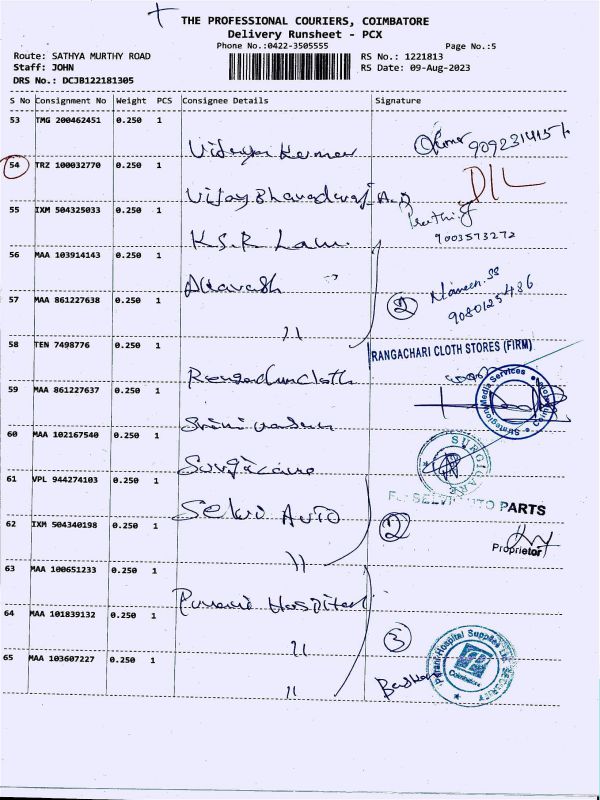 THE PROFESSIONAL COURIERS, COIMBATORE
Delivery Runsheet - PCX
Phone No.:0422-3505555
Page No.:5
Route: SATHYA MURTHY ROAD
RS No.: 1221813
Staff: JOHN
RS Date: 09-Aug-2023
DRS No.: DCJB122181305
S No Consignment No Weight PCS Consignee Details Signature
53 TMG 200462451 0.250 1
Kumar 9092314157
54 TRZ 100032770 0.250 1
Vijay Bharadwaj A.D D/L
55 IXM 504325033 0.250 1
9003573272
K.S.R Law
56 MAA 103914143 0.250 1
2 Naveen.SS
9080125486
57 MAA 861227638 0.250 1
11
58 TEN 7498776 0.250 1
RANGACHARI CLOTH STORES (FIRM)
59 MAA 861227637 0.250 1
Strategion Media Services Coimbatore
60 MAA 102167540 0.250 1
Surgicare
SURGICARE
61 VPL 944274103 0.250 1
Selvi Auto
SELVI AUTO PARTS
2
62 IXM 504340198 0.250 1
Proprietor
11
63 MAA 100651233 0.250 1
Hospital
64 MAA 101839132 0.250 1
11
3
Hospital Supplies
Coimbatore
SECURITY
65 MAA 103607227 0.250 1
11